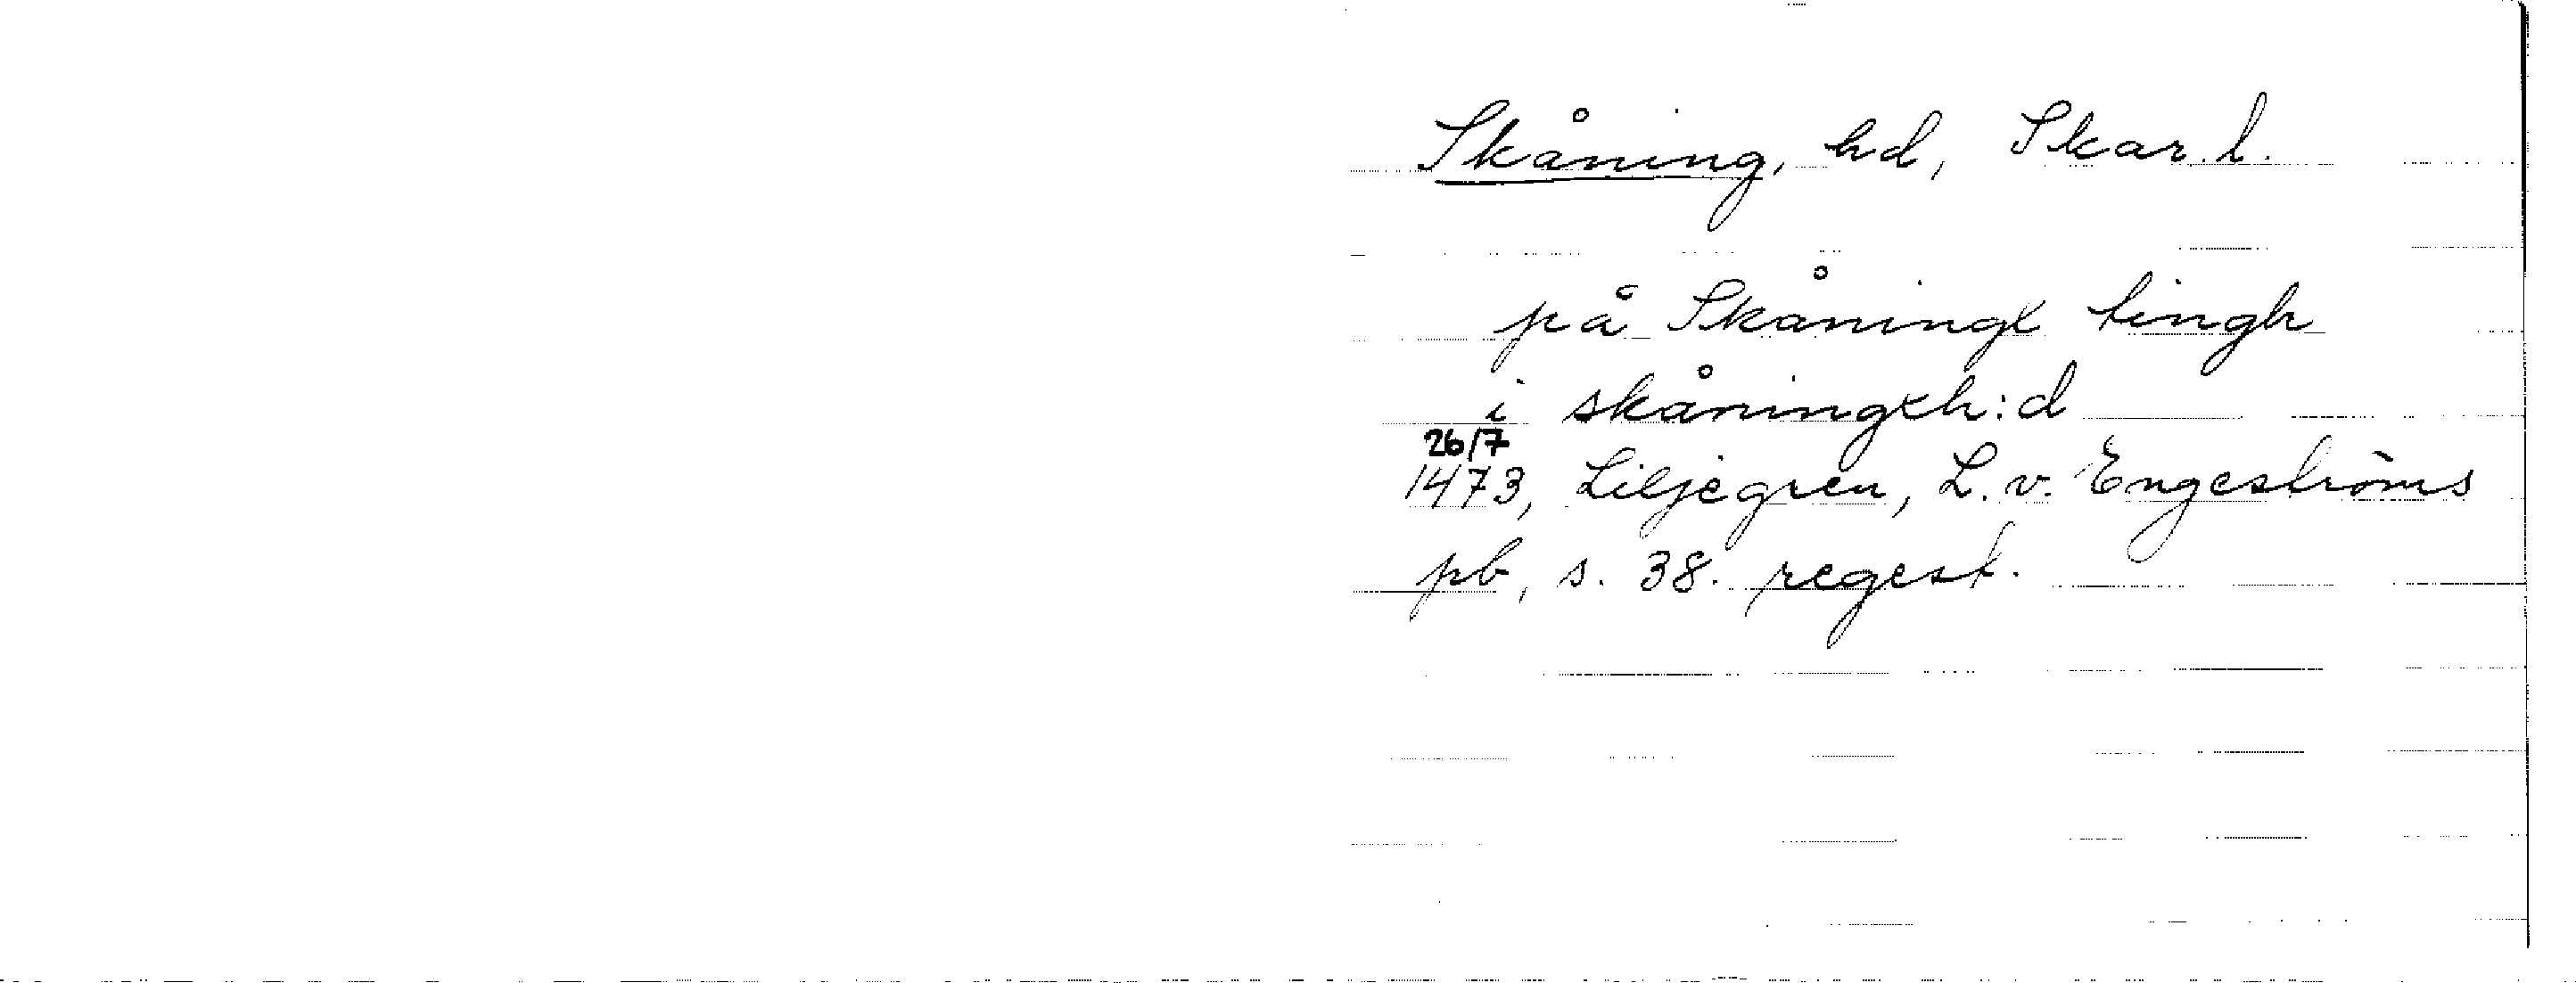 Skåning, hd, Skar. l.
på Skåningx tingh
i skåningxh:d
26/7
1473, Liljegren, L. v. Engeströms
pb, s. 38. regest.